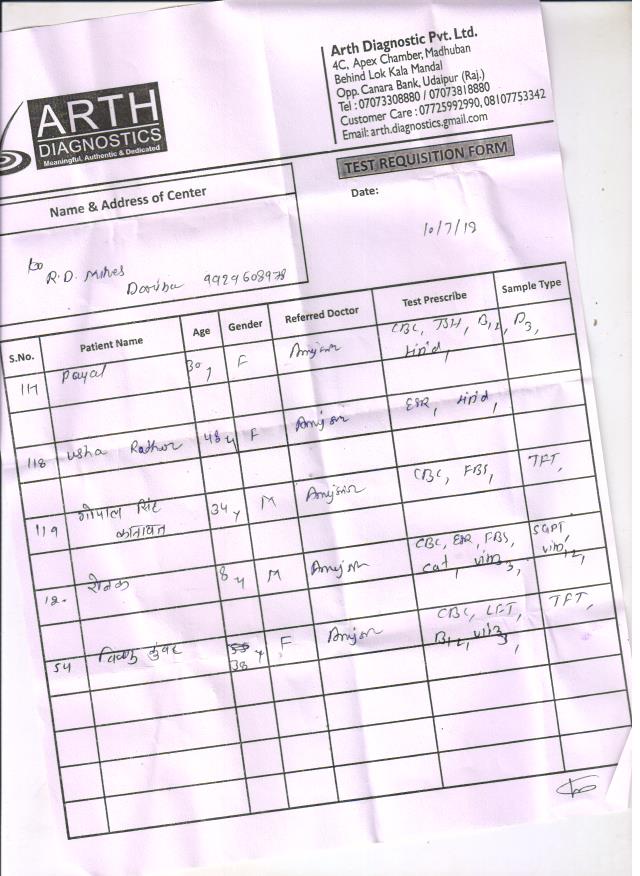 ARTH
DIAGNOSTICS
Meaningful, Authentic & Dedicated
Arth Diagnostic Pvt. Ltd.
4C, Apex Chamber, Madhuban
Behind Lok Kala Mandal
Opp. Canara Bank, Udaipur (Raj.)
Tel : 07073308880 / 07073818880
Customer Care : 07725992990, 08107753342
Email: arth.diagnostics.gmail.com
TEST REQUISITION FORM
Name & Address of Center
Date:
10/7/19
R.D.
9929608978
S.No. Patient Name Age Gender Referred Doctor Test Prescribe Sample Type
117 Payal 30 y F CBC, TSH, B12, D3,
118 Usha Rathor 48 y F ESR,
119 गोपाल सिंह 34 y M CBC, FBS, TFT,
12. रोनक 8 y M CBC, ESR, FBS, SGPT,
54 कुंवर 38 y F CBC, LFT, TFT,
B12,